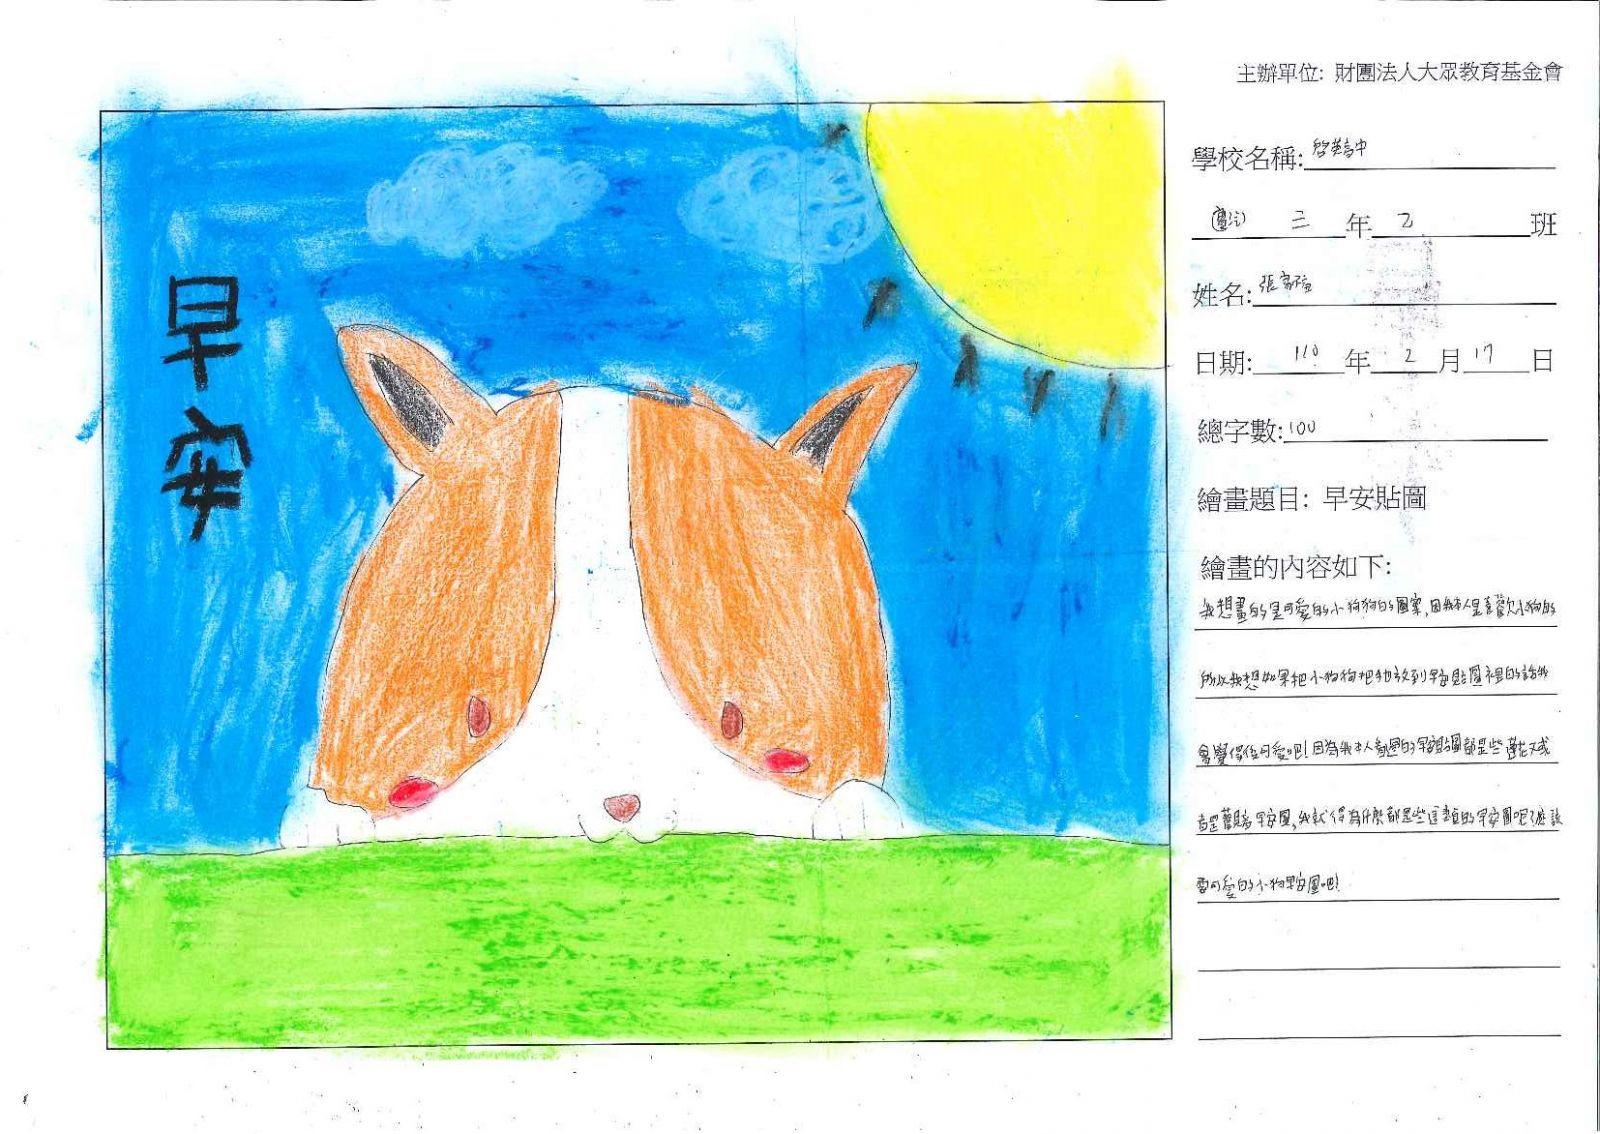 早安
主辦單位: 財團法人大眾教育基金會
學校名稱: 啓英高中
三 年 乙 班
姓名: 張家
日期: 110 年 2 月 17 日
總字數: 100
繪畫題目: 早安貼圖
繪畫的內容如下:
我想畫的是可愛的小狗狗的圖案,因我本人是喜歡小狗的
所以我想如果把小狗狗把他放到早安貼圖裡的話我
會覺得很可愛吧!因為我本人看過的早安貼圖都是些蓮花或
早安圖,我就 得為什麼都是些這類的早安圖呢?應該
要可愛的小狗早安圖吧!